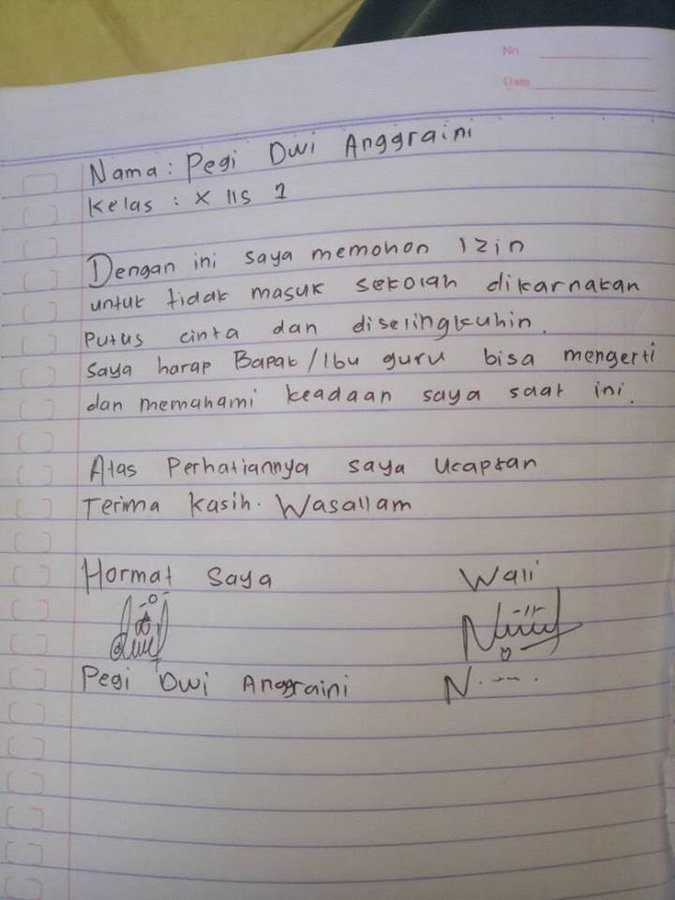 No.
Date
Nama : Pegi Dwi Anggraini
Kelas : X IIS 1
Dengan ini saya memohon izin
untuk tidak masuk sekolah dikarnakan
Putus cinta dan diselingkuhin.
Saya harap Bapak/Ibu guru bisa mengerti
dan memahami keadaan saya saat ini.
Atas Perhatiannya saya Ucapkan
Terima Kasih. Wasallam
Hormat Saya Wali
Pegi Dwi Anggraini N.----.